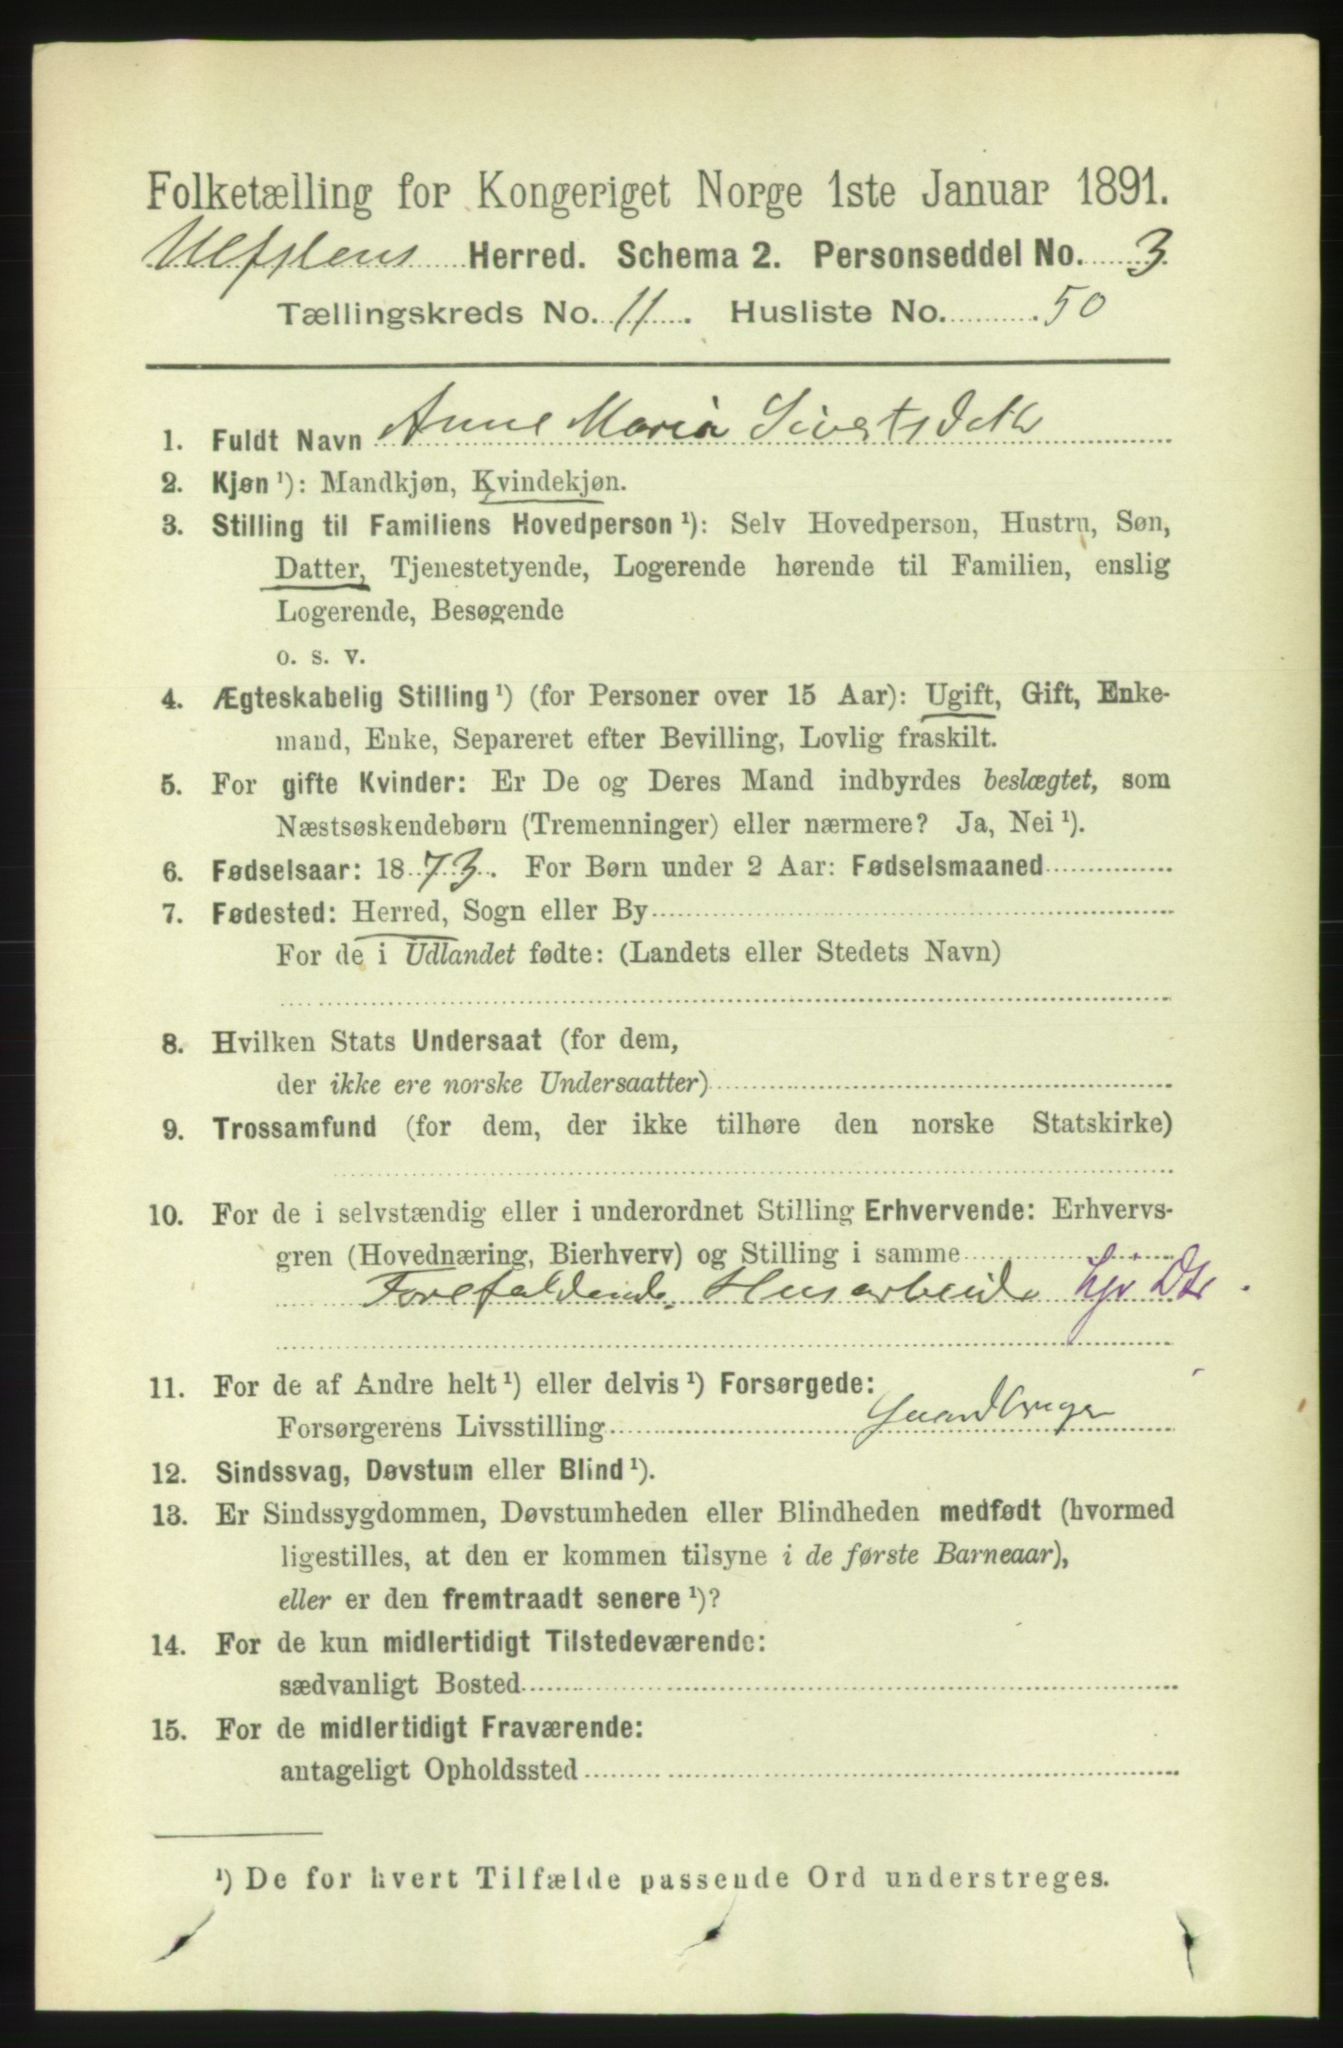 Folketælling for Kongeriget Norge 1ste Januar 1891.
Herred. Schema 2. Personseddel No. 3
Tællingskreds No. 11. Husliste No. 50
1. Fuldt Navn Anne Maria Sivertsdatter
2. Kjøn ¹): Mandkjøn, Kvindekjøn.
3. Stilling til Familiens Hovedperson ¹): Selv Hovedperson, Hustru, Søn,
Datter, Tjenestetyende, Logerende hørende til Familien, enslig
Logerende, Besøgende
o. s. v.
4. Ægteskabelig Stilling ¹) (for Personer over 15 Aar): Ugift, Gift, Enke-
mand, Enke, Separeret efter Bevilling, Lovlig fraskilt.
5. For gifte Kvinder: Er De og Deres Mand indbyrdes beslægtet, som
Næstsøskendebørn (Tremenninger) eller nærmere? Ja, Nei ¹).
6. Fødselsaar: 1873. For Børn under 2 Aar: Fødselsmaaned
7. Fødested: Herred, Sogn eller By
For de i Udlandet fødte: (Landets eller Stedets Navn)
8. Hvilken Stats Undersaat (for dem,
der ikke ere norske Undersaatter)
9. Trossamfund (for dem, der ikke tilhøre den norske Statskirke)
10. For de i selvstændig eller i underordnet Stilling Erhvervende: Erhvervs-
gren (Hovednæring, Bierhverv) og Stilling i samme
Forefaldende Husarbeide
11. For de af Andre helt ¹) eller delvis ¹) Forsørgede:
Forsørgerens Livsstilling Gaardbruger
12. Sindssvag, Døvstum eller Blind ¹).
13. Er Sindssygdommen, Døvstumheden eller Blindheden medfødt (hvormed
ligestilles, at den er kommen tilsyne i de første Barneaar),
eller er den fremtraadt senere ¹)?
14. For de kun midlertidigt Tilstedeværende:
sædvanligt Bosted
15. For de midlertidigt Fraværende:
antageligt Opholdssted
¹) De for hvert Tilfælde passende Ord understreges.